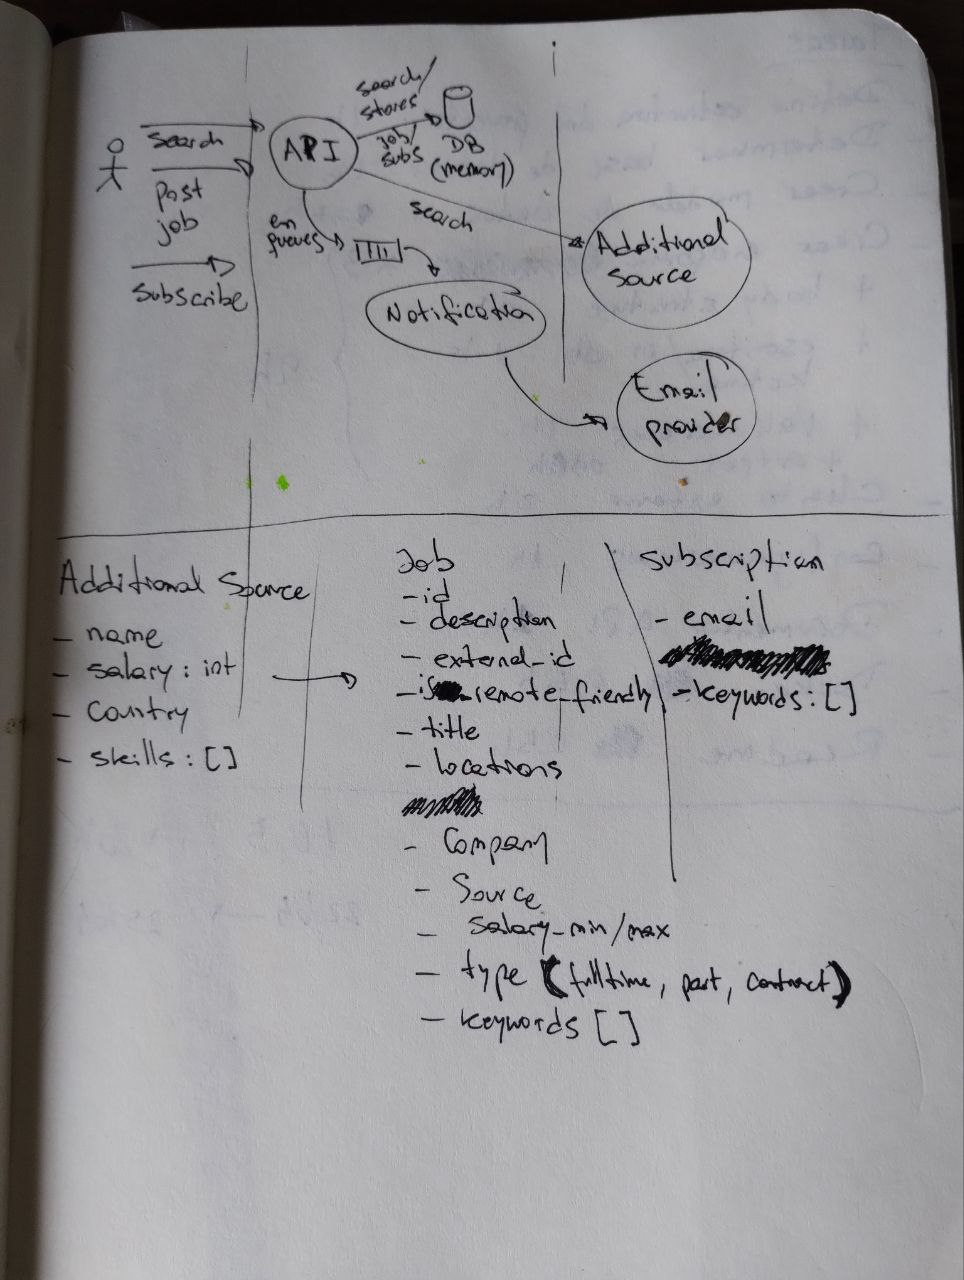 search
post
job
subscribe
API
search/
stores
job/
subs
DB
(memory)
en
queues
search
Additional
source
Notification
Email
provider
Additional Source
- name
- salary : int
- Country
- skills : []
Job
- id
- description
- external_id
- is_remote_friendly
- title
- locations
- Company
- Source
- salary_min/max
- type (fulltime, part, contract)
- keywords []
subscription
- email
- keywords : []